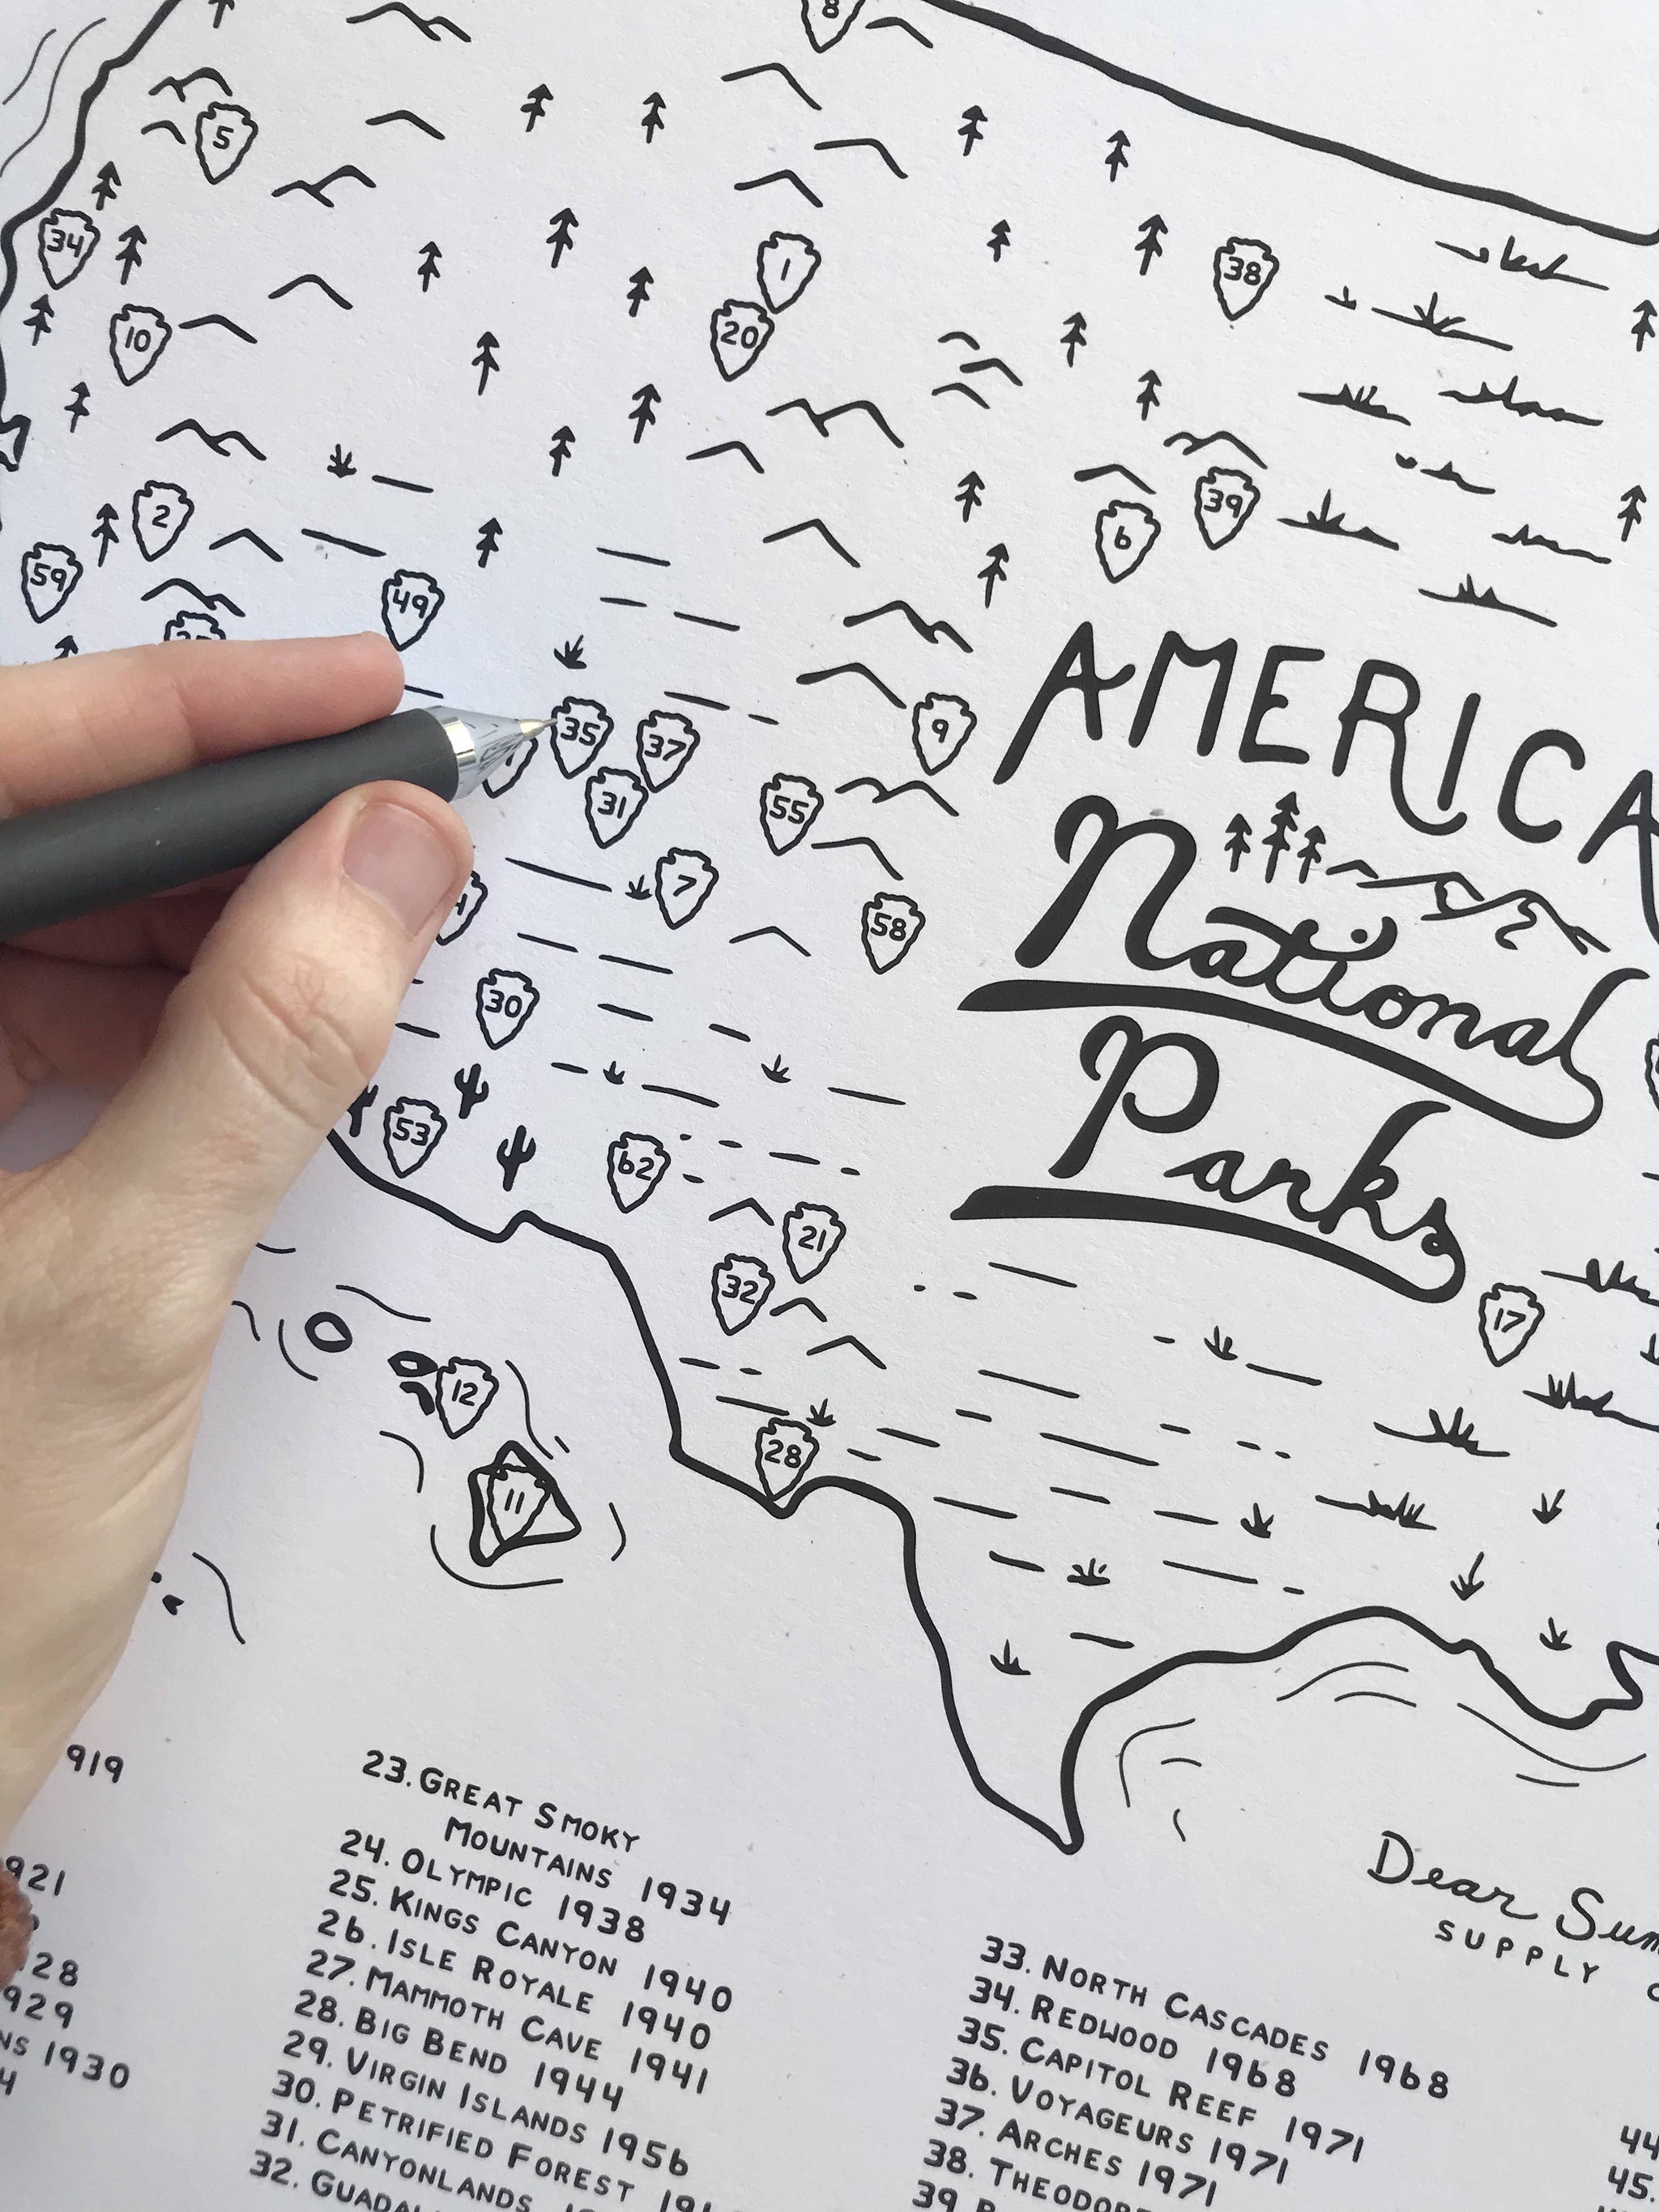 8
5
34
1
38
10
20
2
39
6
59
49
AMERICA
35
37
9
31
55
National
7
58
30
Parks
53
62
21
32
17
12
28
11
919
921
28
929
NS 1930
4
23. GREAT SMOKY
MOUNTAINS 1934
24. OLYMPIC 1938
25. KINGS CANYON 1940
26. ISLE ROYALE 1940
27. MAMMOTH CAVE 1941
28. BIG BEND 1944
29. VIRGIN ISLANDS 1956
30. PETRIFIED FOREST
31. CANYONLANDS
32.
33. NORTH CASCADES 1968
34. REDWOOD 1968
35. CAPITOL REEF 1971
36. VOYAGEURS 1971
37. ARCHES 1971
38.
39.
Dear
SUPPLY
44
45.